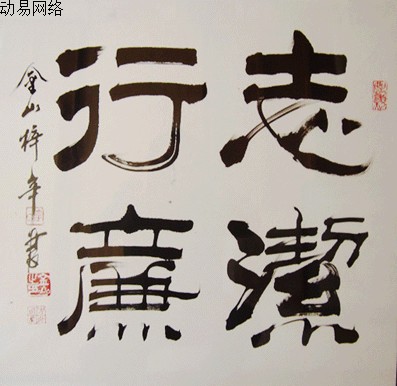 动易网络
志潔
行廉
金山梓年书